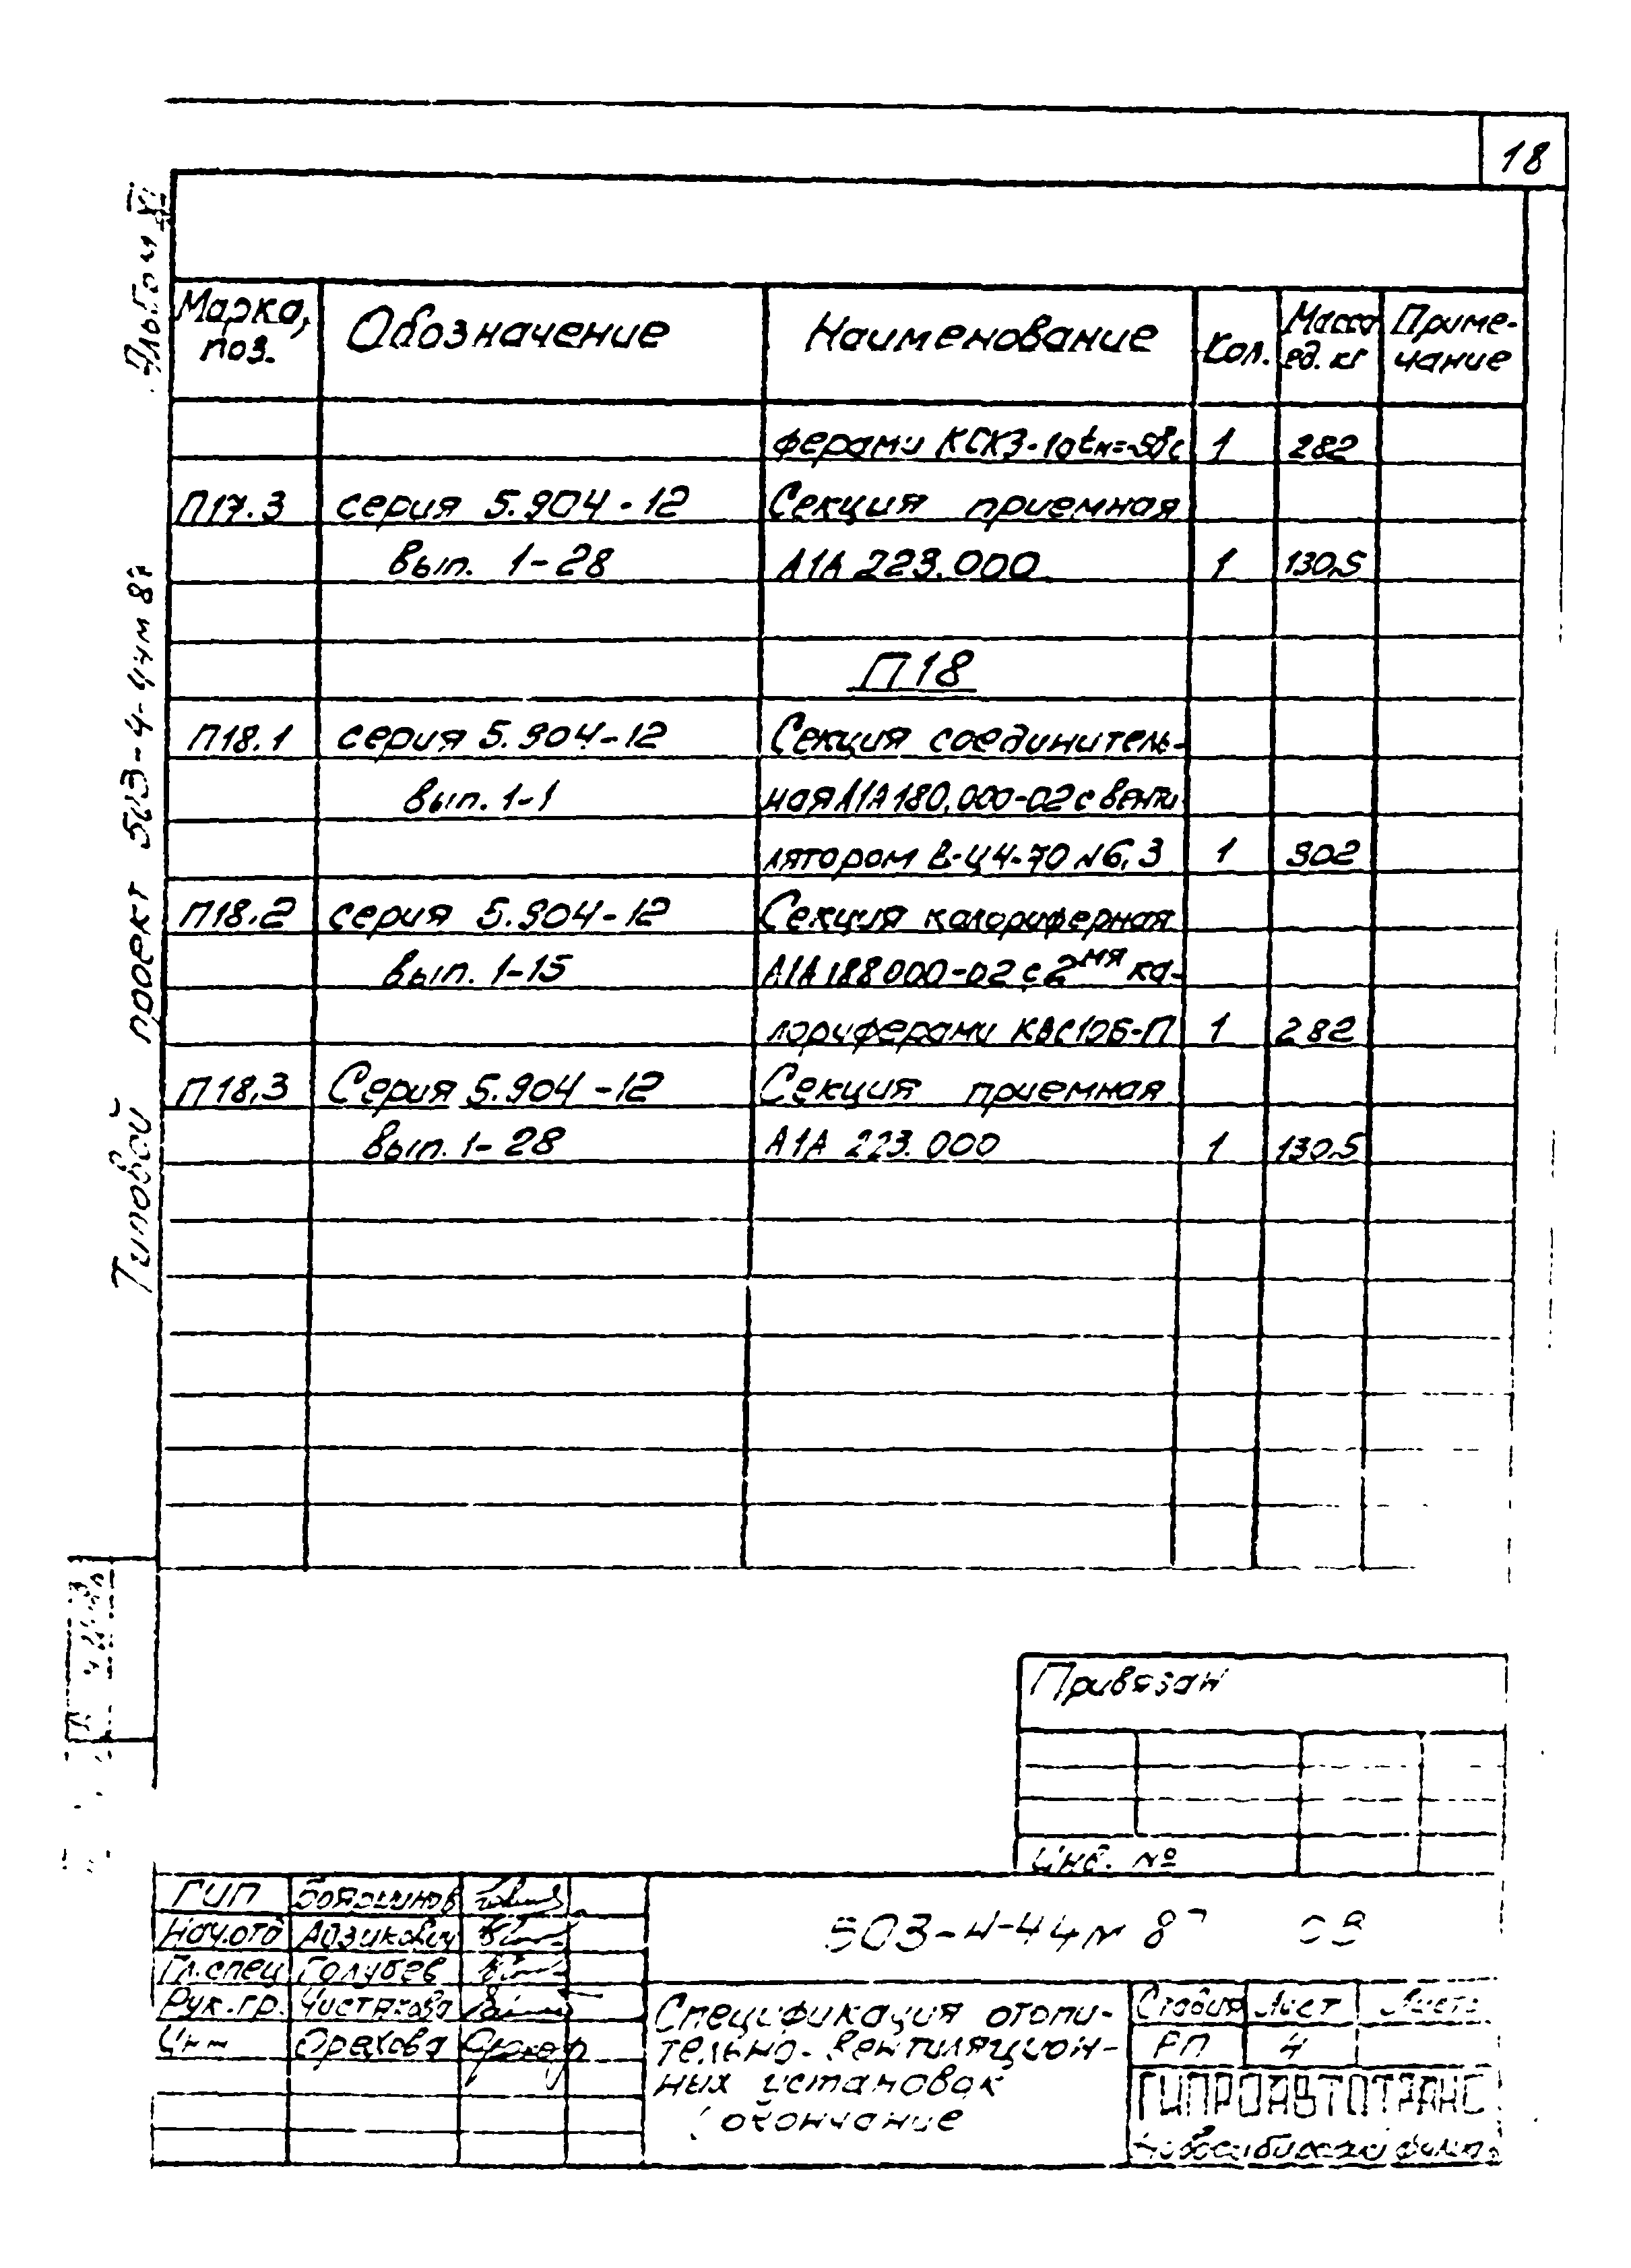 18
Альбом XI
Типовой проект 503-4-44м 87
Марка, поз. Обозначение Наименование Кол. Масса ед. кг Приме-чание
ферами КСК3-10 1 282
П17.3 серия 5.904-12 Секция приемная
вып. 1-28 А1А 223.000 1 130,5
П18
П18.1 серия 5.904-12 Секция соединитель-
вып. 1-1 ная А1А 180.000-02 с венти
лятором В-Ц4-70 №6,3 1 302
П18.2 серия 5.904-12 Секция калориферная
вып. 1-15 А1А 188 000-02 с 2мя ка-
лориферами КВС10Б-П 1 282
П18.3 Серия 5.904-12 Секция приемная
вып. 1-28 А1А 223.000 1 130,5
Привязан
Инв. №
ГИП
Нач.отд Айзикович
Гл.спец Голубев
Рук.гр. Чистякова
Инж Орехова
503-4-44м 87 ОВ
Спецификация отопи-
тельно-вентиляцион-
ных установок
(окончание
Стадия Лист Листов
РП 4
ГИПРОАВТОТРАНС
Новосибирский филиал